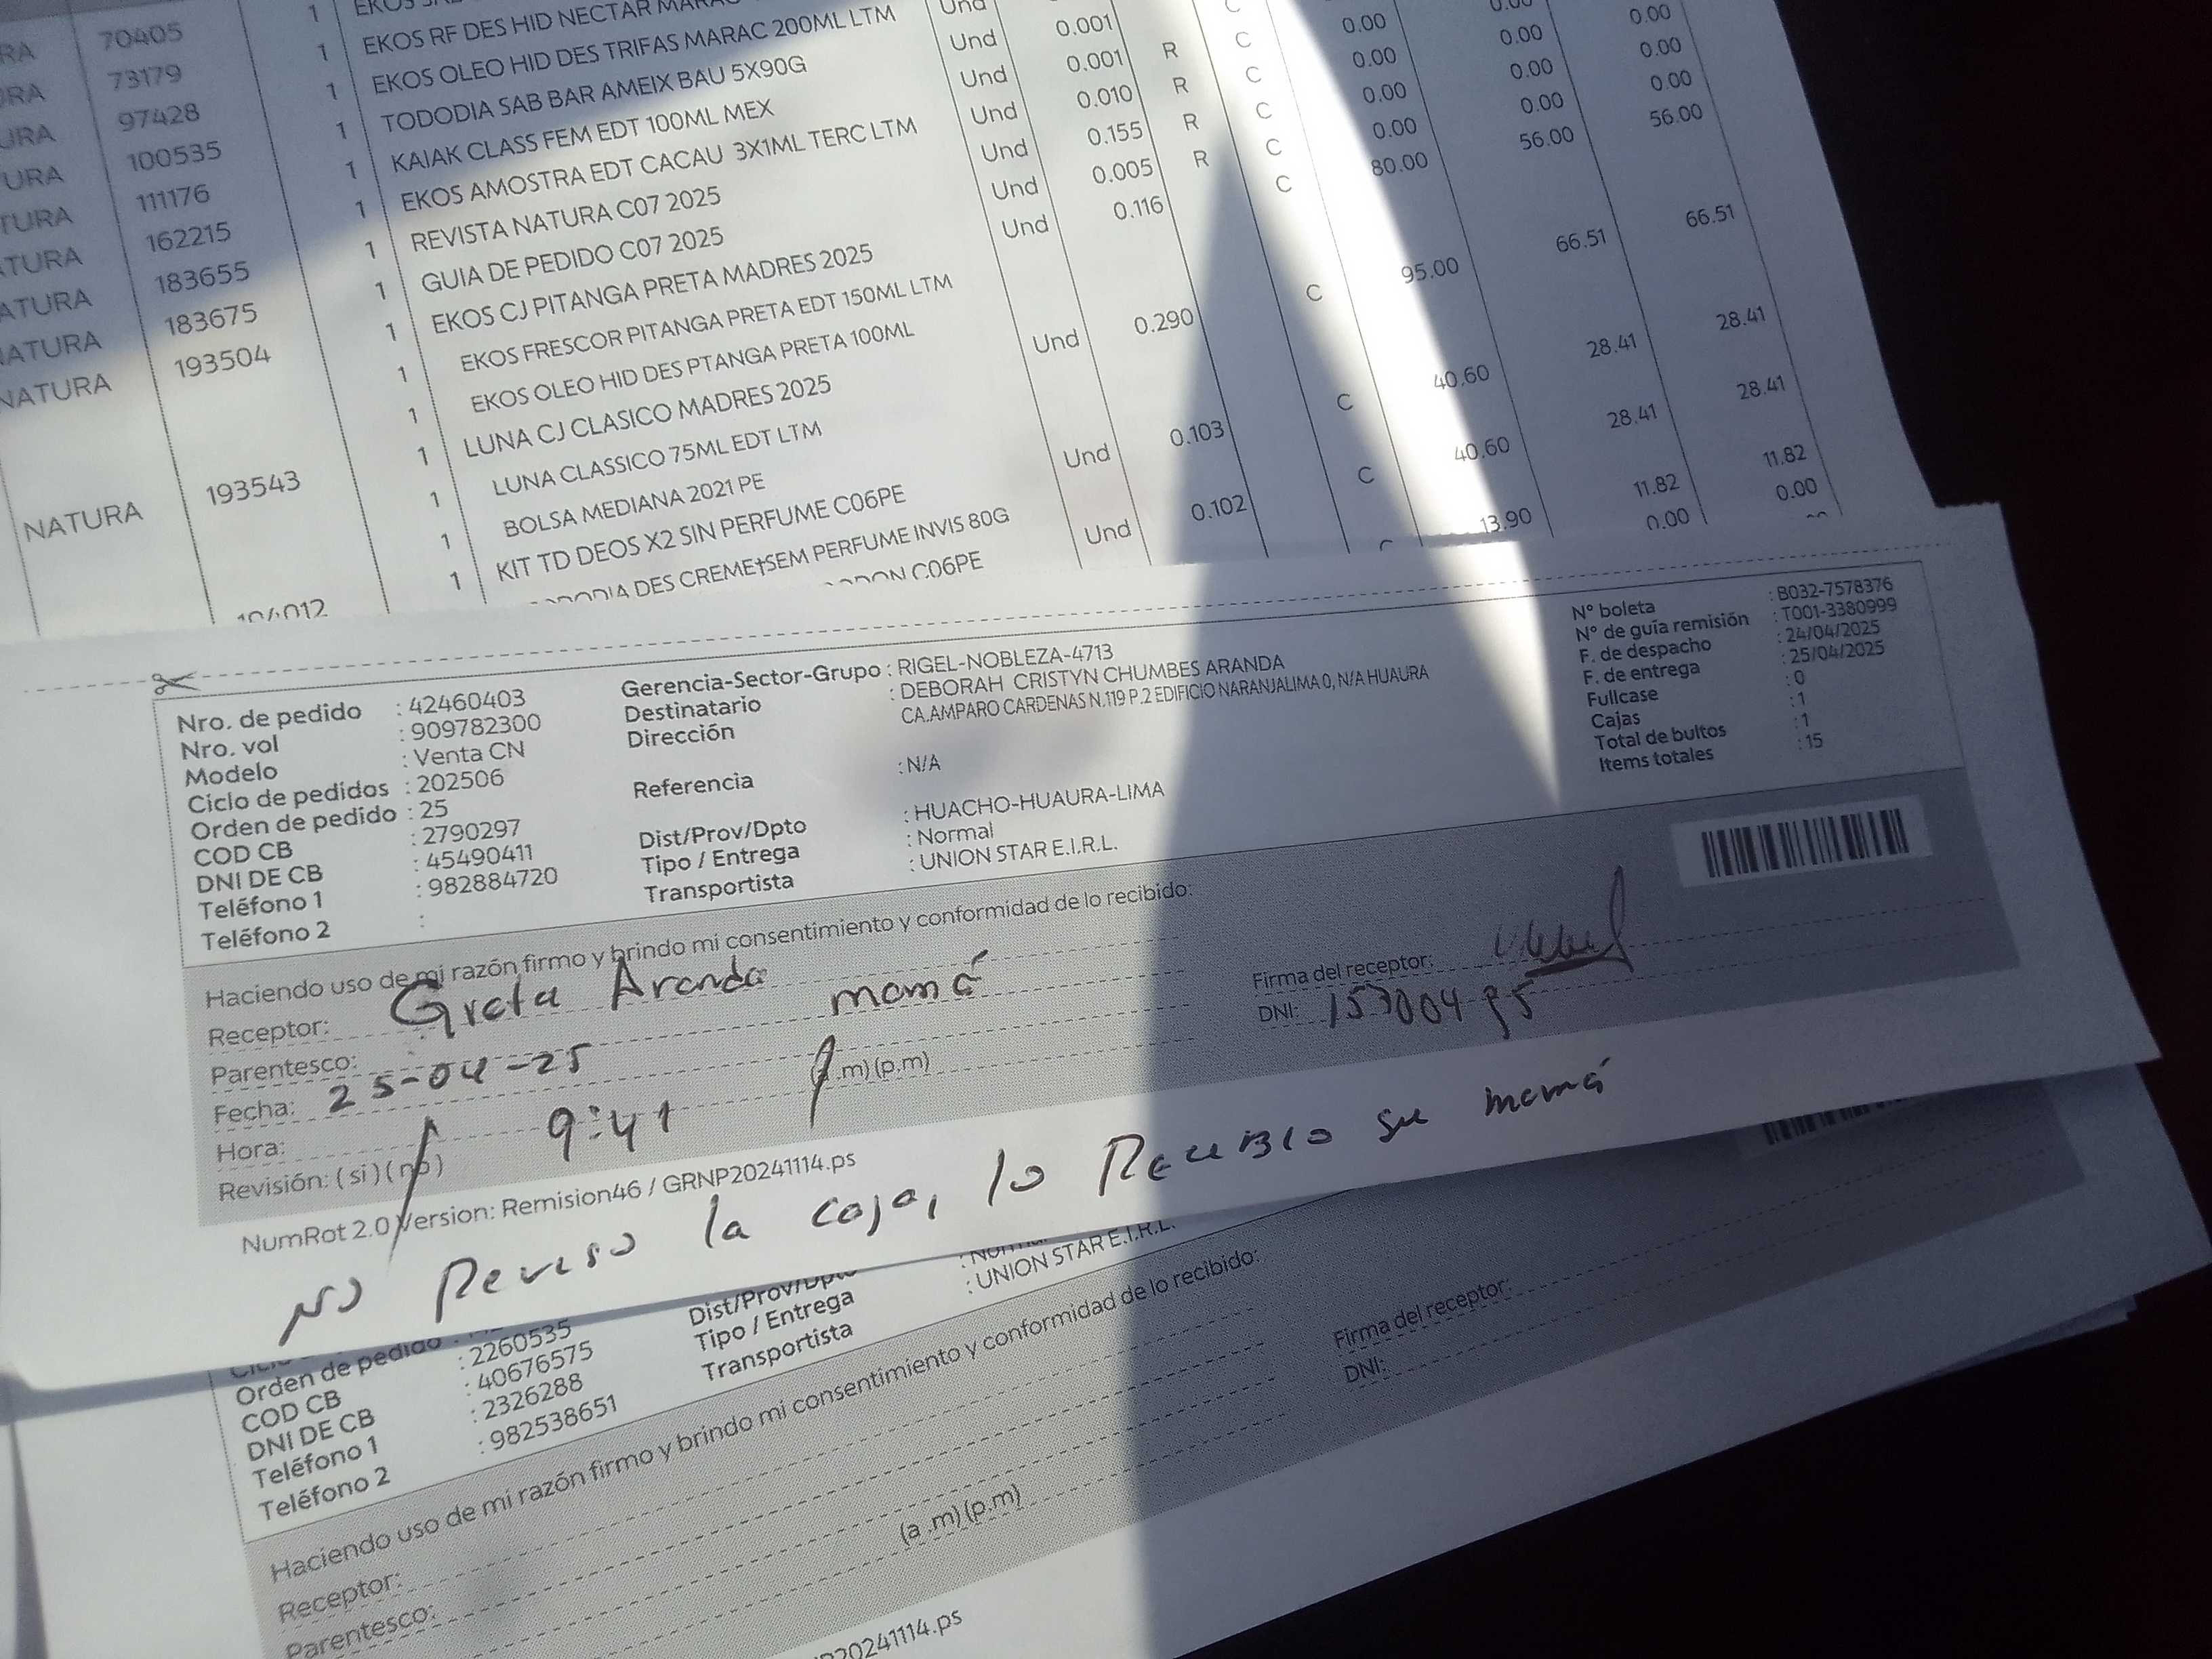 70405 1
73179 1 EKOS RF DES HID NECTAR
97428 1 EKOS OLEO HID DES TRIFAS MARAC 200ML LTM Und 0.001 C 0.00 0.00 0.00
100535 1 TODODIA SAB BAR AMEIX BAU 5X90G Und 0.001 R C 0.00 0.00 0.00
111176 1 KAIAK CLASS FEM EDT 100ML MEX Und 0.010 R C 0.00 0.00 0.00
162215 1 EKOS AMOSTRA EDT CACAU 3X1ML TERC LTM Und 0.155 R C 0.00 0.00 0.00
183655 1 REVISTA NATURA C07 2025 Und 0.005 R C 80.00 56.00 56.00
183675 1 GUIA DE PEDIDO C07 2025 Und 0.116 C
NATURA 193504 1 EKOS CJ PITANGA PRETA MADRES 2025
1 EKOS FRESCOR PITANGA PRETA EDT 150ML LTM Und 0.290 C 95.00 66.51 66.51
1 EKOS OLEO HID DES PTANGA PRETA 100ML
NATURA 193543 1 LUNA CJ CLASICO MADRES 2025 Und 0.103 C 40.60 28.41 28.41
1 LUNA CLASSICO 75ML EDT LTM
1 BOLSA MEDIANA 2021 PE Und 0.102 C 40.60 28.41 28.41
1 KIT TD DEOS X2 SIN PERFUME C06PE 13.90 11.82 11.82
DES CREME SEM PERFUME INVIS 80G 0.00 0.00
C06PE
Nro. de pedido : 42460403
Nro. vol : 909782300
Modelo : Venta CN
Ciclo de pedidos : 202506
Orden de pedido : 25
COD CB : 2790297
DNI DE CB : 45490411
Teléfono 1 : 982884720
Teléfono 2 :
Gerencia-Sector-Grupo : RIGEL-NOBLEZA-4713
Destinatario : DEBORAH CRISTYN CHUMBES ARANDA
Dirección CA.AMPARO CARDENAS N.119 P.2 EDIFICIO NARANJALIMA 0, N/A HUAURA
Referencia : N/A
Dist/Prov/Dpto : HUACHO-HUAURA-LIMA
Tipo / Entrega : Normal
Transportista : UNION STAR E.I.R.L.
N° boleta : B032-7578376
N° de guía remisión : T001-3380999
F. de despacho : 24/04/2025
F. de entrega : 25/04/2025
Fullcase : 0
Cajas : 1
Total de bultos : 1
Items totales : 15
Haciendo uso de mi razón firmo y brindo mi consentimiento y conformidad de lo recibido:
Receptor: Greta Aranda
Parentesco: mamá
Fecha: 25-04-25
Hora: 9:41 (a.m) (p.m)
Revisión: (si) (no)
Firma del receptor:
DNI: 15700495
NumRot 2.0 Version: Remision46 / GRNP20241114.ps
NO Reviso la caja, lo Recibio su mamá
Orden de pedido
COD CB : 2260535
DNI DE CB : 40676575
Teléfono 1 : 2326288
Teléfono 2 : 982538651
Dist/Prov/Dpto
Tipo / Entrega
Transportista : UNION STAR E.I.R.L.
Haciendo uso de mi razón firmo y brindo mi consentimiento y conformidad de lo recibido:
Receptor:
Parentesco:
(a .m) (p.m)
Firma del receptor:
DNI:
20241114.ps